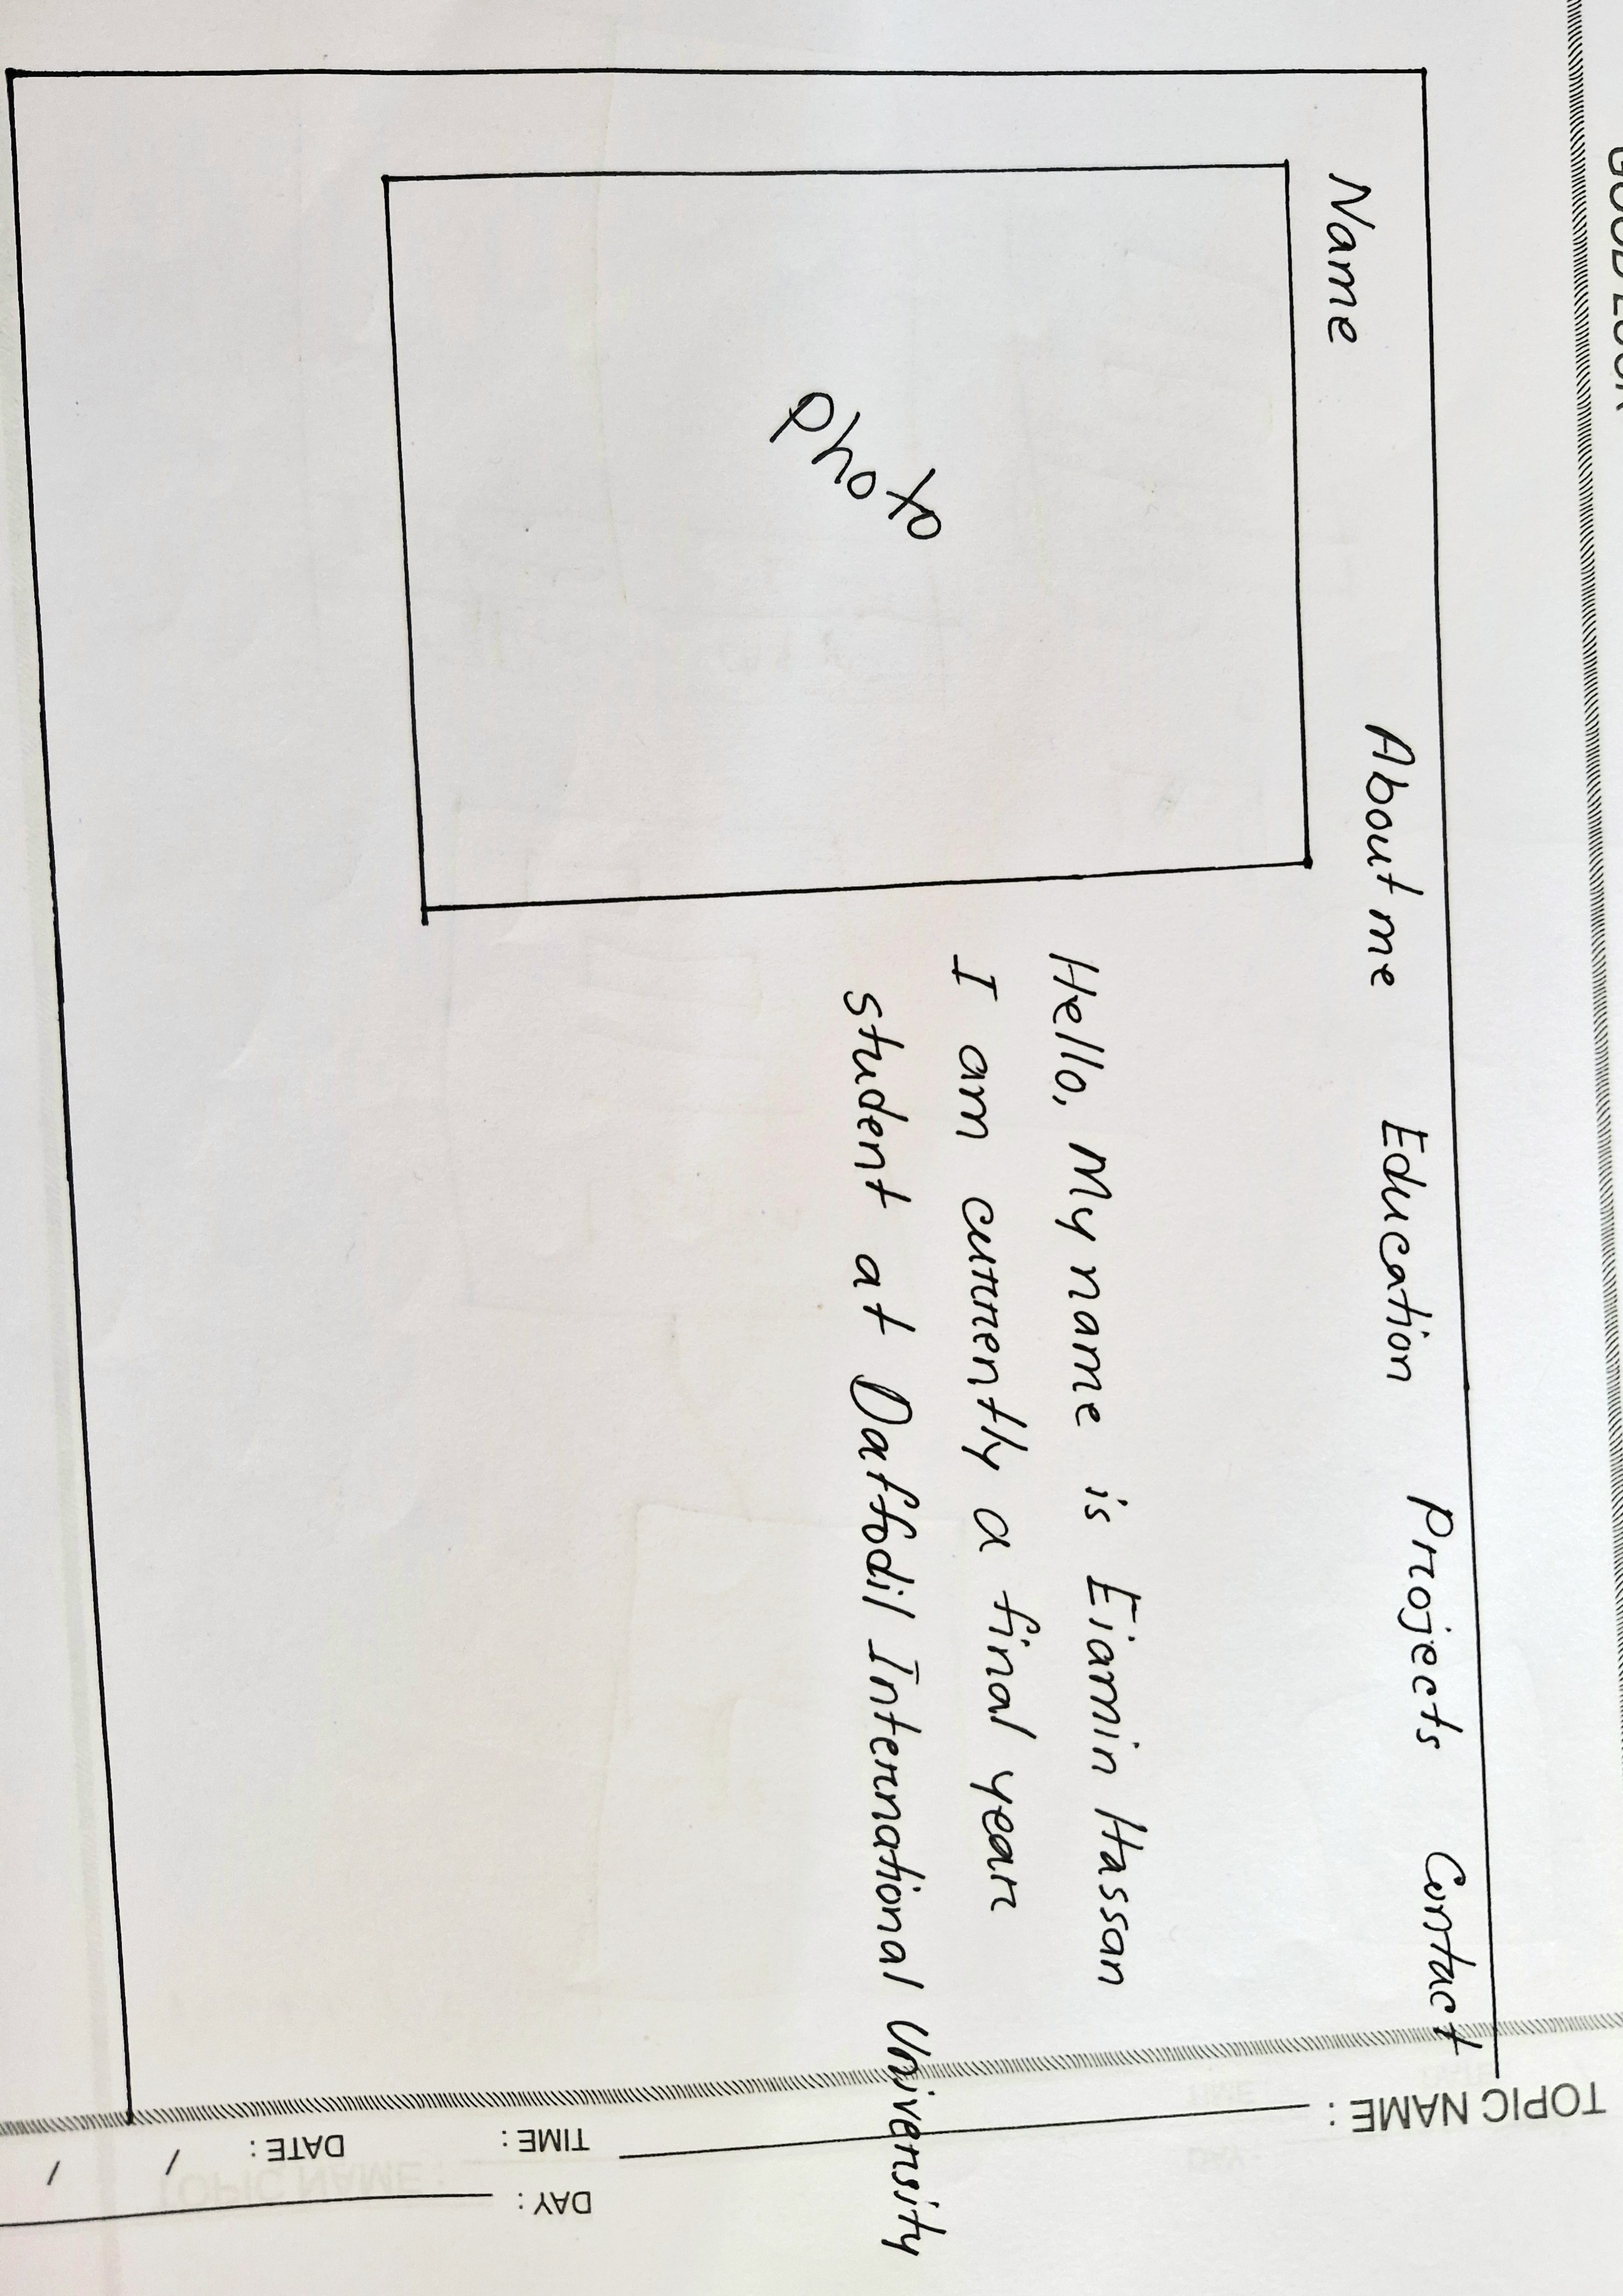 GOOD LUCK
TOPIC NAME :
Name
About me
Education
Projects
Contact
Photo
Hello, My name is Eiamin Hassan
I am currently a final year
student at Daffodil International University
DAY :
TIME :
DATE : / /